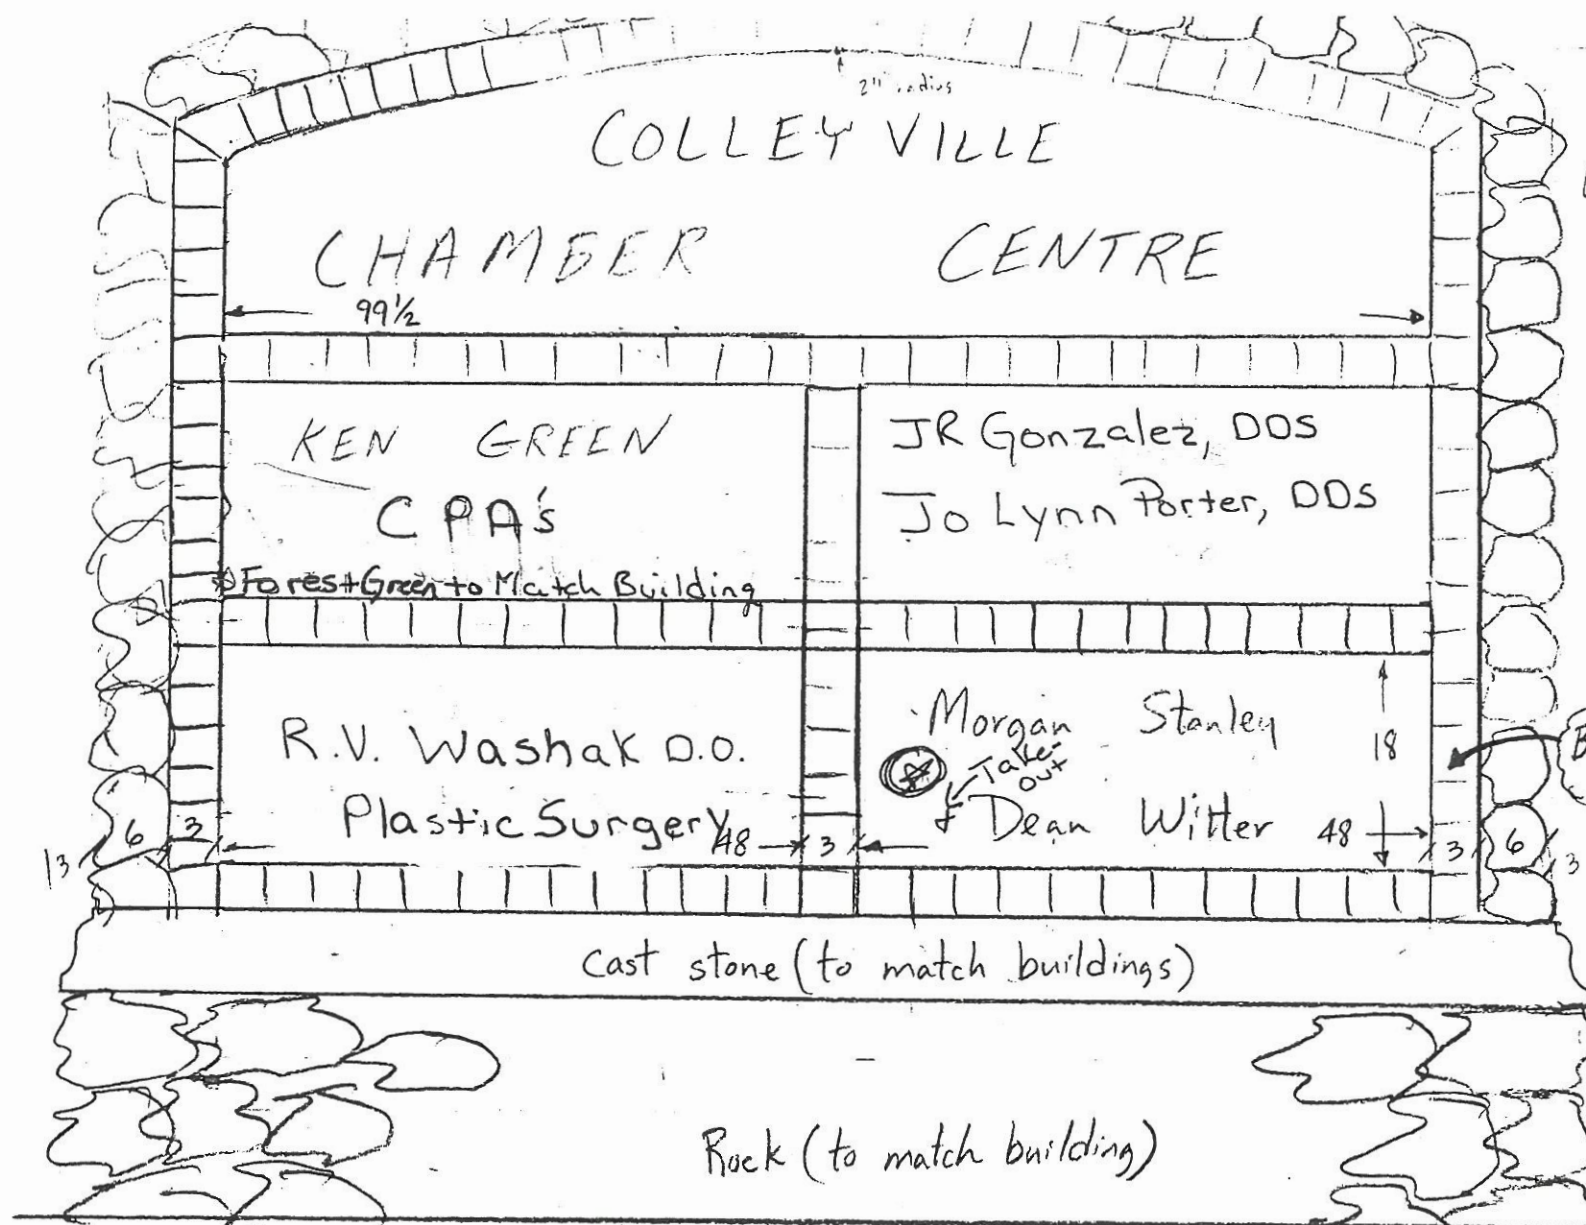 2" radius
COLLEYVILLE
CHAMBER CENTRE
99½
KEN GREEN
CPA's
Forest Green to Match Building
JR Gonzalez, DDS
Jo Lynn Porter, DDS
R.V. Washak D.O.
Plastic Surgery
Morgan Stanley
Take out
Dean Witter
18
3 6 3 48 3 48 3 6 3
Cast stone (to match buildings)
Rock (to match building)